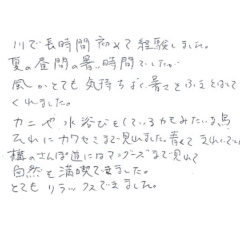 川で長時間初めて経験しました。
夏の昼間の暑い時間でしたが
風がとても気持ちよく暑さをふきとばして
くれました。
カニや水浴びをしているカモみたいな鳥
それにカワセミまで見れました。青くてきれいでした
横のさんぽ道にはマングースまで見れて
自然を満喫できました。
とてもリラックスできました。